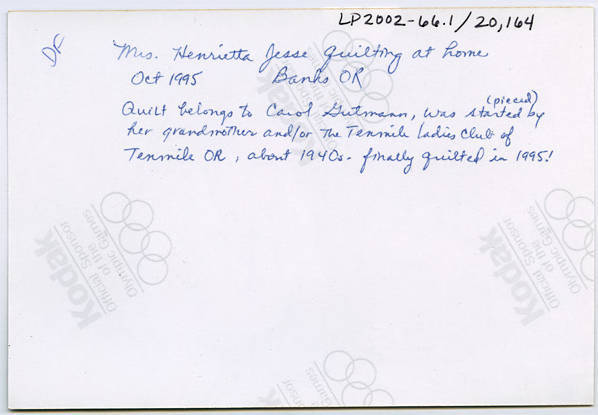 LP2002-66.1/20,164
DR
Mrs. Henrietta Jesse quilting at home
Oct 1995 Banks OR
(pieced)
Quilt belongs to Carol Gutmann, was started by
her grandmother and/or the Tenmile Ladies Club of
Tenmile OR, about 1940s - finally quilted in 1995!
Kodak
Official Sponsor
of the
Olympic Games
Kodak
Official Sponsor
of the
Olympic Games